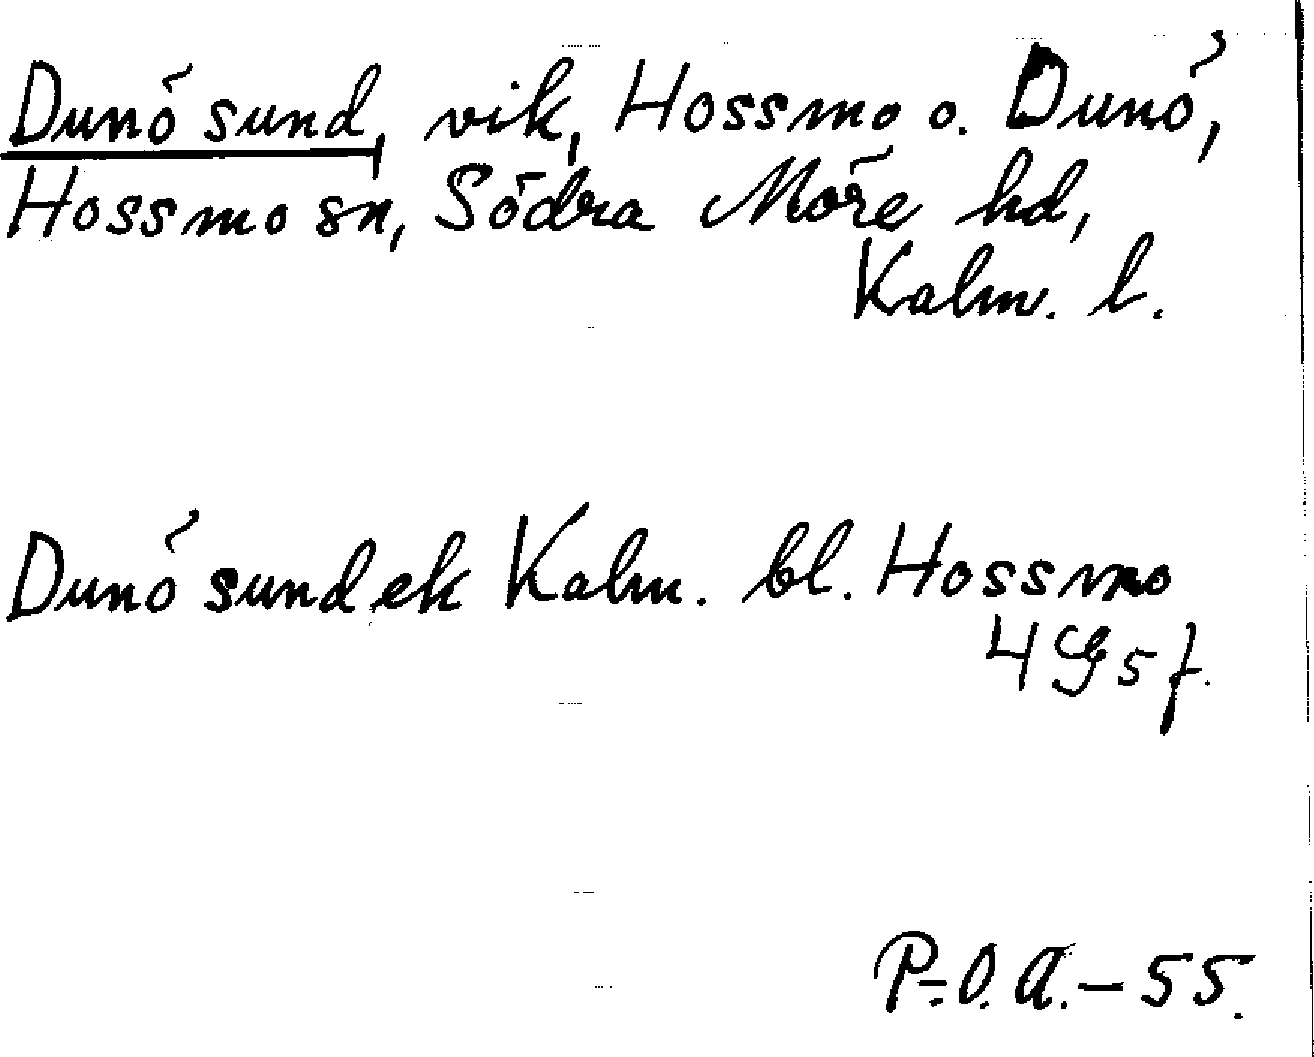 Dunö sund, vik, Hossmo o. Dunö,
Hossmo sn, Södra Möre hd,
Kalm. l.
Dunö sund ek Kalm. bl. Hossmo
4 G 5 f.
P-O. A. - 55.